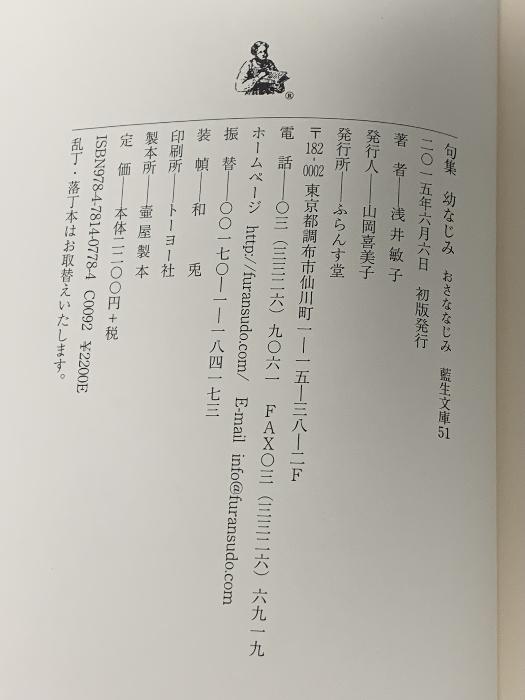 句集 幼なじみ おさななじみ 藍生文庫51
二〇一五年六月六日 初版発行
著 者──浅井敏子
発行人──山岡喜美子
発行所──ふらんす堂
〒182-0002 東京都調布市仙川町一―一五―三八―二F
電 話──〇三(三三二六)九〇六一 FAX〇三(三三二六)六九一九
ホームページ http://furansudo.com/ E-mail info@furansudo.com
振 替──〇〇一七〇―一―一八四一七三
装 幀──和 兎
印刷所──トーヨー社
製本所──壷屋製本
定 価──本体二二〇〇円+税
ISBN978-4-7814-0778-4 C0092 ¥2200E
乱丁・落丁本はお取替えいたします。
®